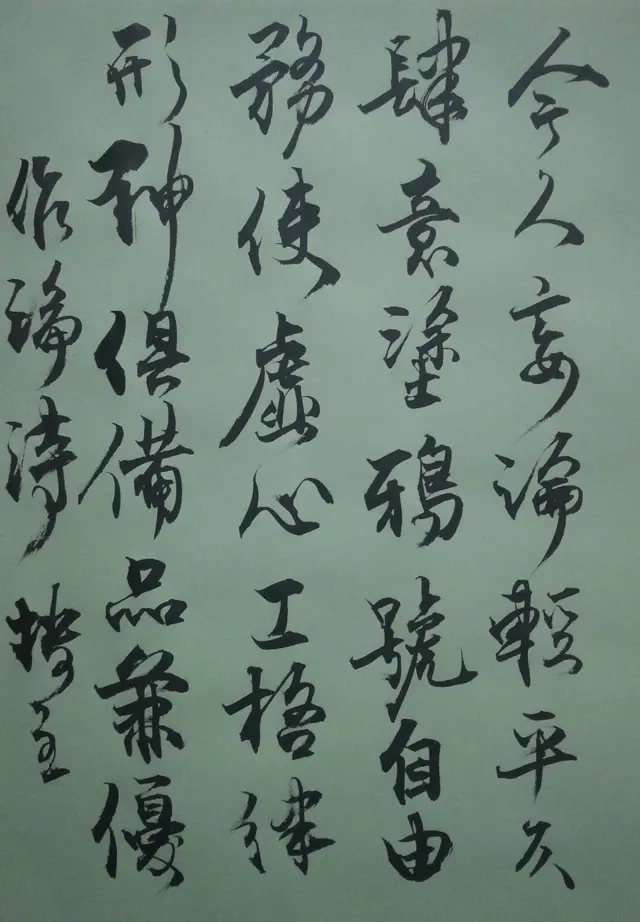 今人妄論輕平仄
肆意塗鴉號自由
務使虛心工格律
形神俱備品兼優
作論詩